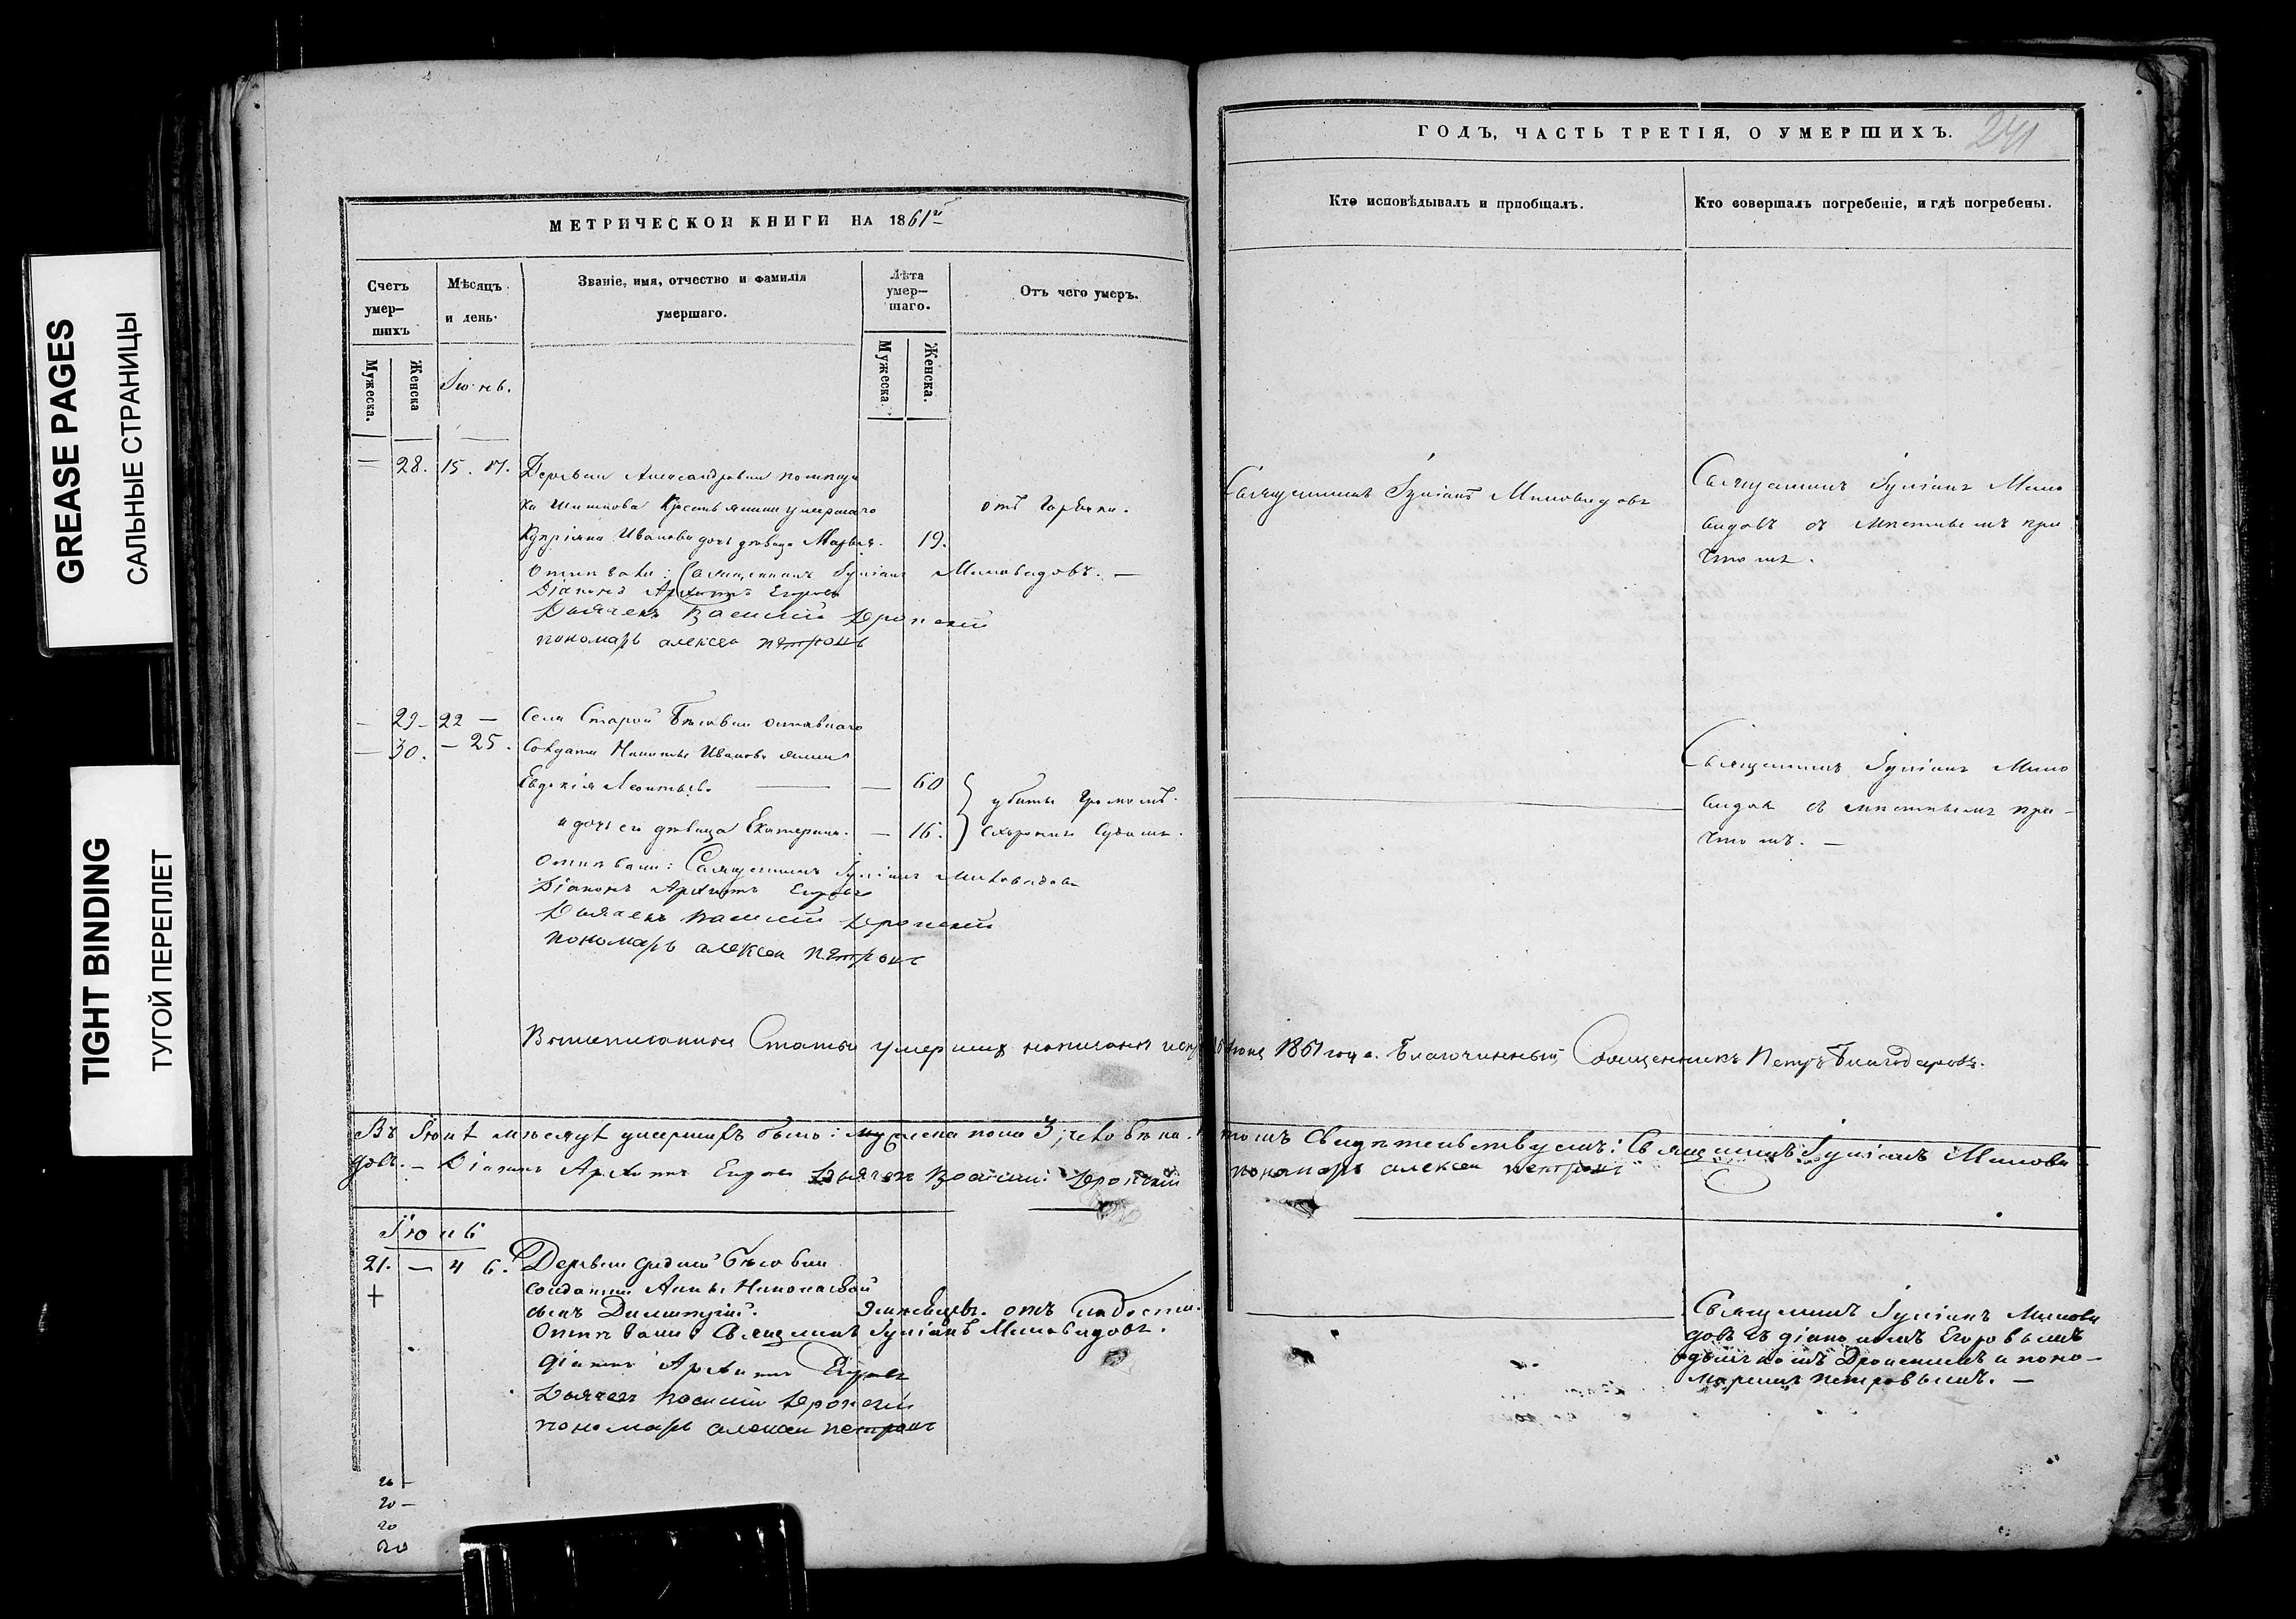 GREASE PAGES
САЛЬНЫЕ СТРАНИЦЫ
TIGHT BINDING
ТУГОЙ ПЕРЕПЛЕТ
МЕТРИЧЕСКОЙ КНИГИ НА 1861й
Счетъ умер-
шихъ
Мѣсяцъ
и день.
Званіе, имя, отчество и фамилія
умершаго.
Лѣта
умер-
шаго.
Отъ чего умеръ.
Мужеска.
Женска
Мужеска.
Женска.
Іюнь.
— 28. 15. 17. Деревни Александровки помѣщи
ка Шишкова крестьянина умершаго
отъ горячки.
Купріяна Иванова дочь дѣвица Марья. 19.
Отпѣвали: Священникъ Іуліанъ Миловидовъ. —
Діаконъ Архипъ Егоровъ
Дьячекъ Василій Дронскій
пономарь алексеи петровъ
— 29 — 22 — Села Старой Бѣловки отставнаго
— 30. — 25. Солдата Никиты Иванова жена
Евдокія Леонтьева. — — 60
убиты громомъ.
и дочь его дѣвица Екатерина. — 16.
Отпѣвали: Священникъ Іуліанъ Миловидовъ
Діаконъ Архипъ Егоровъ
Дьячекъ Василій Дронскій
пономарь алексеи петровъ
Вышеписанныя Статьи умершихъ
Въ Іюнѣ мѣсяцѣ умершихъ было: женска пола 3, человѣка.
довъ. — Діаконъ Архипъ Егоровъ Дьячекъ Василій Дронскій
Іюнь
21. — 4 6. Деревни Средней Бѣловки
солдатки Анны Николаевой
+ сынъ Димитрій. отъ слабости.
Отпѣвали: Священникъ Іуліанъ Миловидовъ.
Діаконъ Архипъ Егоровъ
Дьячекъ Василій Дронскій
пономарь алексеи петровъ
20 —
20 —
20
20
ГОДЪ, ЧАСТЬ ТРЕТІЯ, О УМЕРШИХЪ.
241
Кто исповѣдывалъ и пріобщалъ.
Кто совершалъ погребеніе, и гдѣ погребены.
Священникъ Іуліанъ Миловидовъ
Священникъ Іуліанъ Мило
видовъ съ мѣстнымъ при
чтомъ.
Священникъ Іуліанъ Мило
видовъ съ мѣстнымъ при-
чтомъ. —
1861 года. Благочинный, Священникъ Петръ Благодаровъ.
томъ свидѣтельствуемъ: Священникъ Іуліанъ Милови
пономарь алексеи петровъ
Священникъ Іуліанъ Милови
довъ съ діакономъ Егоровымъ
дьячкомъ Дронскимъ и поно-
маремъ Петровымъ. —